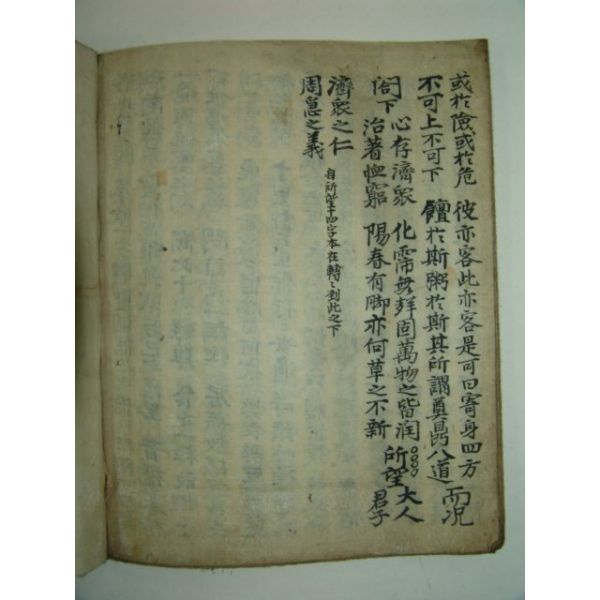 或於險或於危 彼亦客此亦客是可曰寄身四方 而况
不可上不可下 饘於斯粥於斯其所謂奠八道
閤下 心存濟衆 化霈無固萬物之皆润 所望 大人
治著恤窮 陽春有脚亦何草之不新 君子
濟衆之仁
周急之義
自所望十四字本在轉〻到此之下